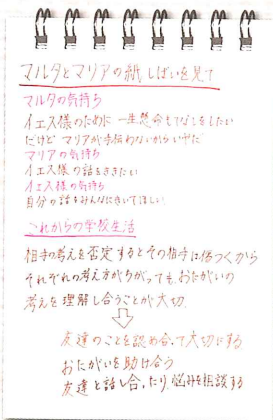 マルタとマリアの紙しばいを見て
マルタの気持ち
イエス様のために一生懸命もてなしをしたい
だけどマリアが手伝わないからいやだ
マリアの気持ち
イエス様の話をききたい
イエス様の気持ち
自分の話をみんなにきいてほしい
これからの学校生活
相手の考えを否定するとその相手は傷つくから
それぞれの考え方がちがっても、おたがいの
考えを理解し合うことが大切
友達のことを認め合って大切にする
おたがいを助け合う
友達と話し合ったり、悩みを相談する